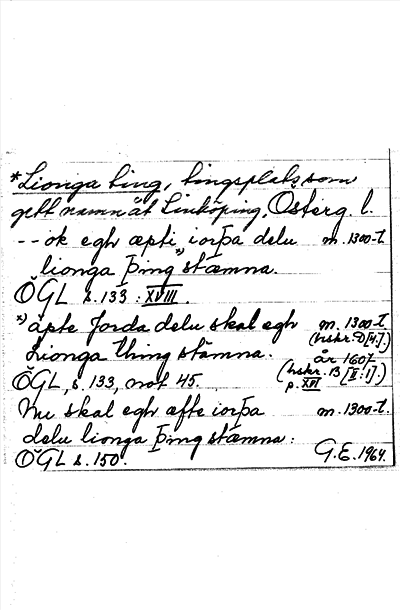 *Lionga ting, tingsplats som
gett namn åt Linköping, Österg. l.
-- ok egh æpti iorþa delu m. 1300-t.
lionga þing *) stæmna.
ÖGL s. 133 : XVIII.
*) äpte Jorda delu skal egh m. 1300-t.
(hskr. D[4].)
Lionga thing stämna. år 1607
ÖGL, s. 133, not 45. (hskr. B [II:1].)
p. XVI
Nu skal egh æfte iorþa m. 1300-t.
delu lionga þing stæmna:
ÖGL s. 150. G.E. 1964.